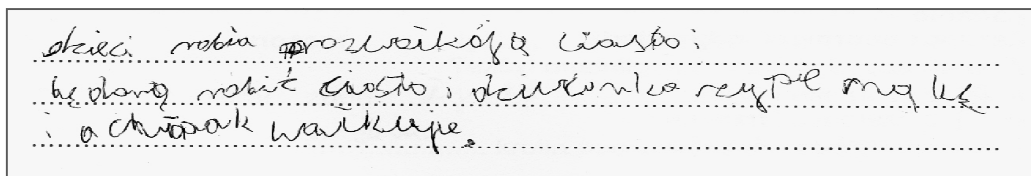 dzieci robia rozwałkóją ciasto i
będową robić ciasto i dziewczynka sezypę mąkę
i a chłopak wałkuje.